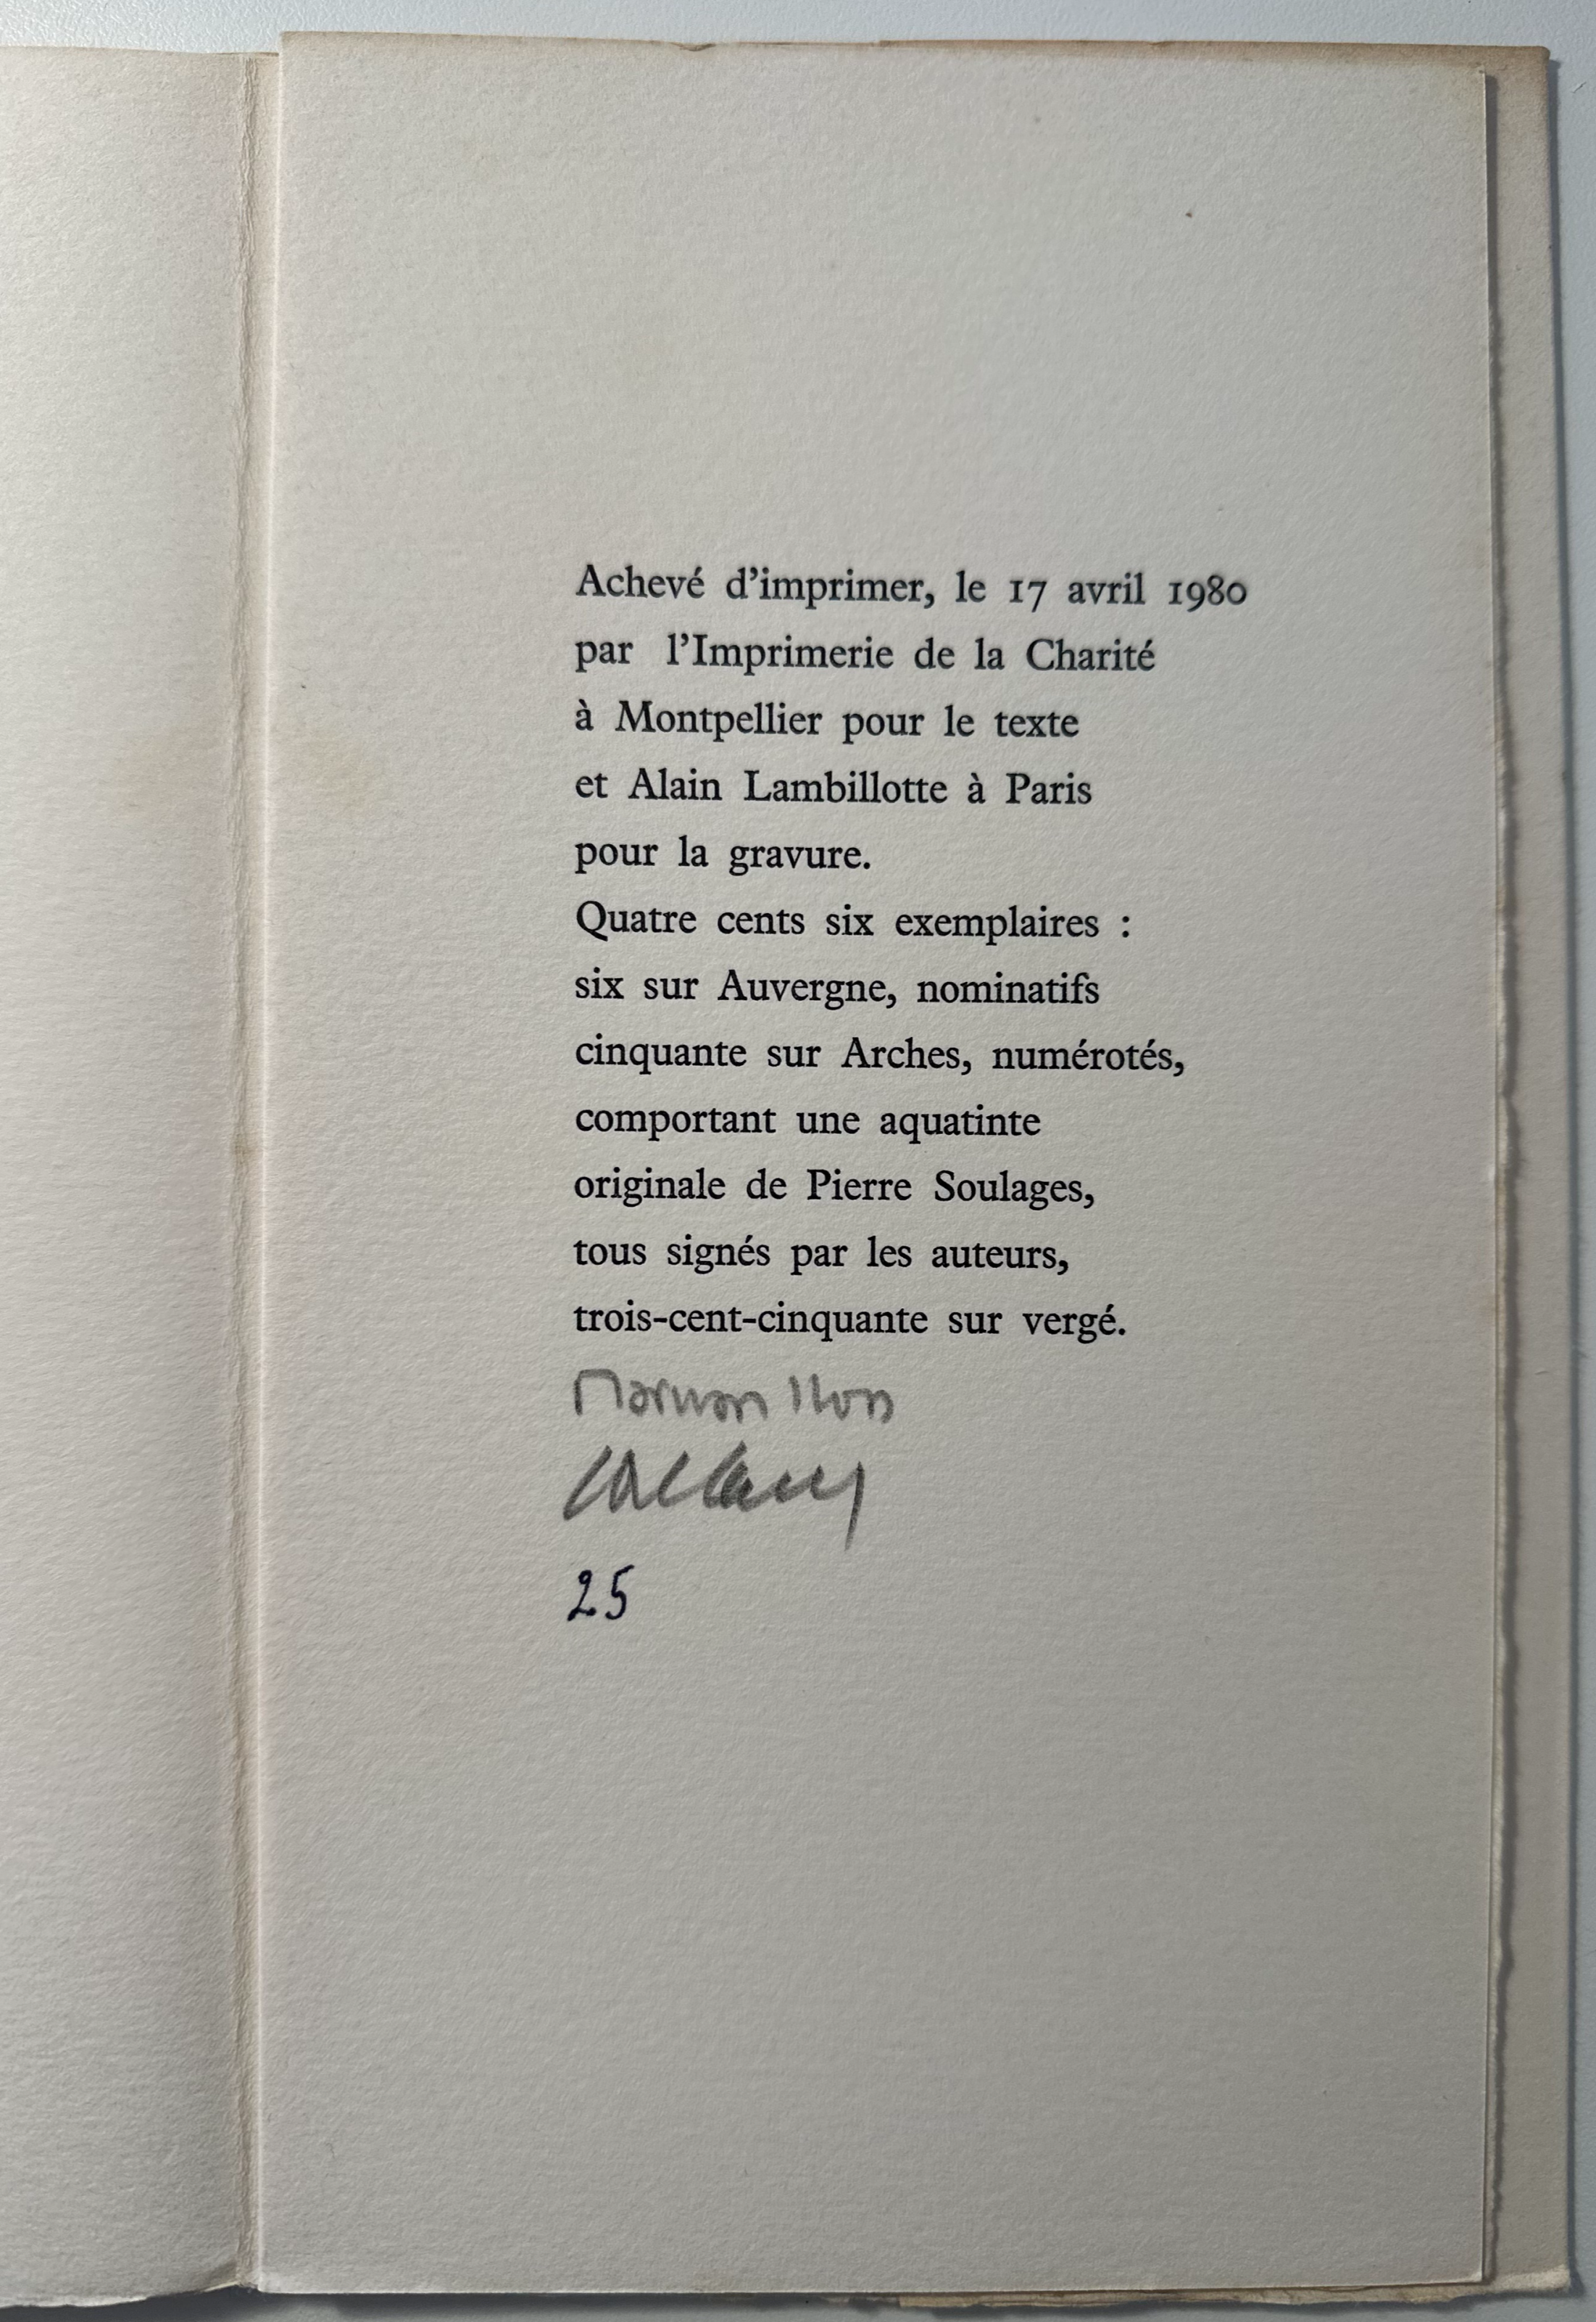 Achevé d'imprimer, le 17 avril 1980
par l'Imprimerie de la Charité
à Montpellier pour le texte
et Alain Lambillotte à Paris
pour la gravure.
Quatre cents six exemplaires :
six sur Auvergne, nominatifs
cinquante sur Arches, numérotés,
comportant une aquatinte
originale de Pierre Soulages,
tous signés par les auteurs,
trois-cent-cinquante sur vergé.
25